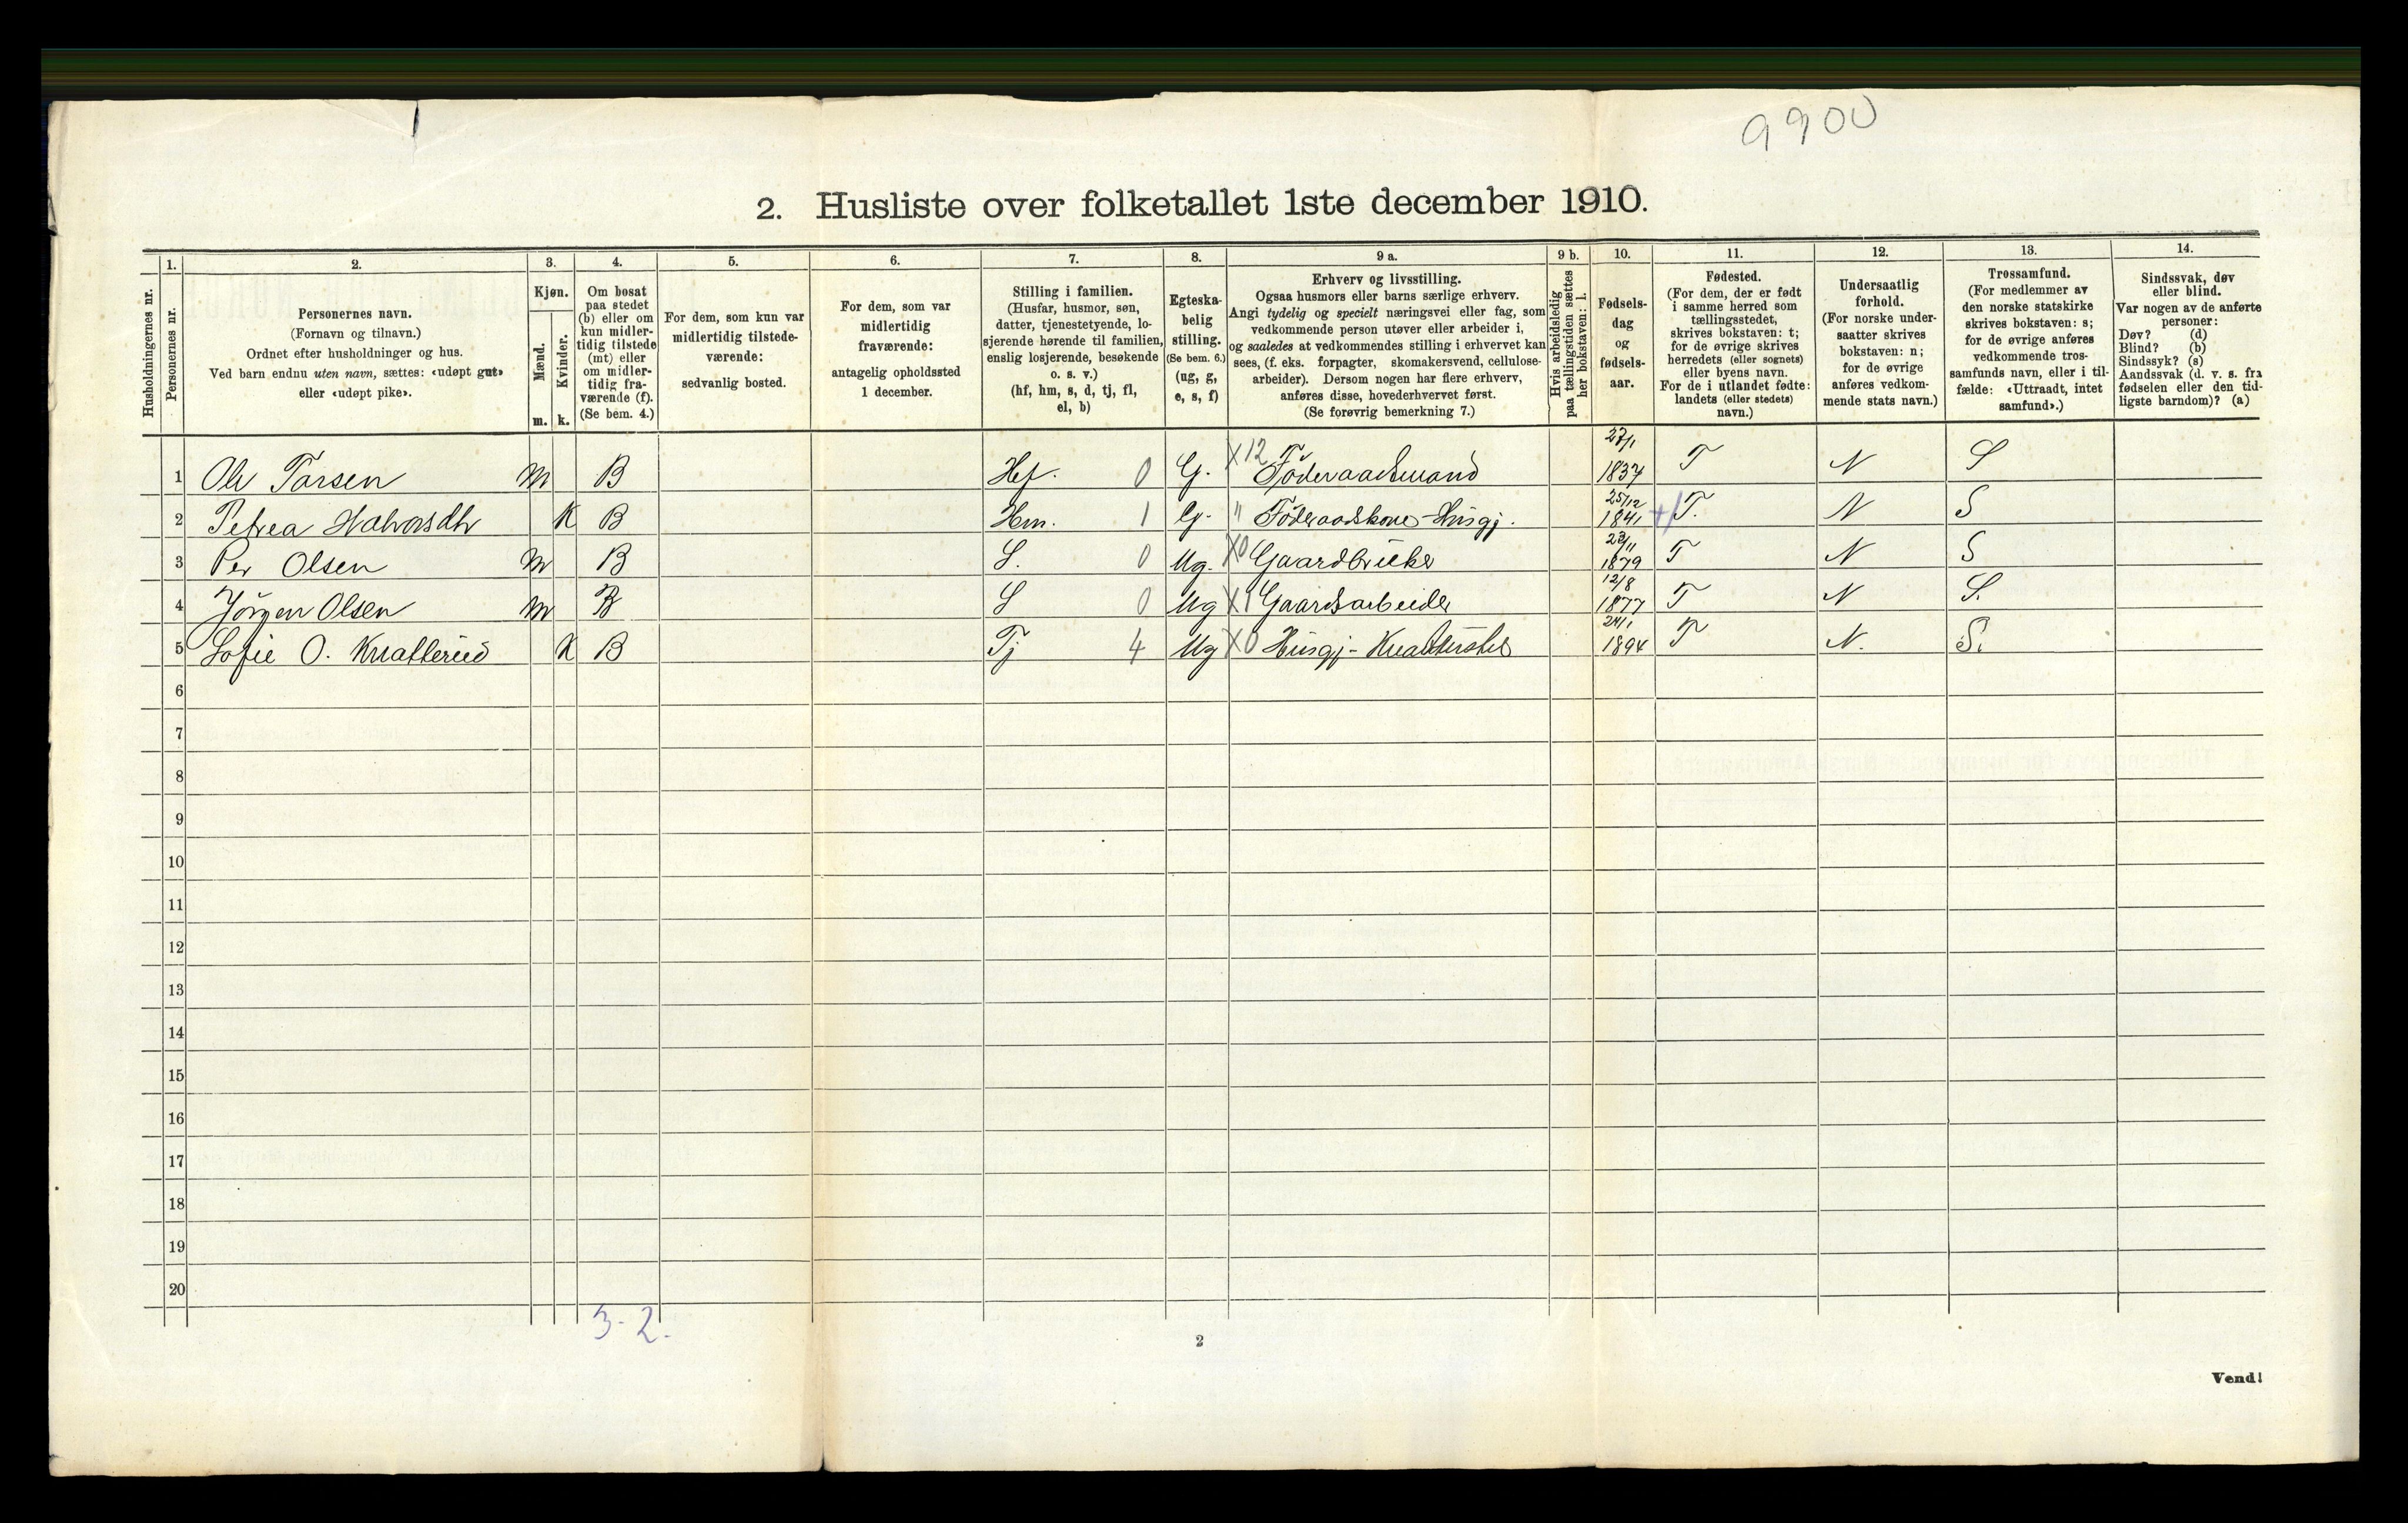 9900
2. Husliste over folketallet 1ste december 1910.
Husholdningernes nr.
1.
Personernes nr.
2.
Personernes navn.
(Fornavn og tilnavn.)
Ordnet efter husholdninger og hus.
Ved barn endnu uten navn, sættes: «udøpt gut»
eller «udøpt pike».
3.
Kjøn.
Mænd.
Kvinder.
m.
k.
4.
Om bosat
paa stedet
(b) eller om
kun midler-
tidig tilstede
(mt) eller
om midler-
tidig fra-
værende (f).
(Se bem. 4.)
5.
For dem, som kun var
midlertidig tilstede-
værende:
sedvanlig bosted.
6.
For dem, som var
midlertidig
fraværende:
antagelig opholdssted
1 december.
7.
Stilling i familien.
(Husfar, husmor, søn,
datter, tjenestetyende, lo-
sjerende hørende til familien,
enslig losjerende, besøkende
o. s. v.)
(hf, hm, s, d, tj, fl,
el, b)
8.
Egteska-
belig
stilling.
(Se bem. 6.)
(ug, g,
e, s, f)
9 a.
Erhverv og livsstilling.
Ogsaa husmors eller barns særlige erhverv.
Angi tydelig og specielt næringsvei eller fag, som
vedkommende person utøver eller arbeider i,
og saaledes at vedkommendes stilling i erhvervet kan
sees, (f. eks. forpagter, skomakersvend, cellulose-
arbeider). Dersom nogen har flere erhverv,
anføres disse, hovederhvervet først.
(Se forøvrig bemerkning 7.)
9 b.
Hvis arbeidsledig
paa tællingstiden sættes
her bokstaven: l.
10.
Fødsels-
dag
og
fødsels-
aar.
11.
Fødested.
(For dem, der er født
i samme herred som
tællingsstedet,
skrives bokstaven: t;
for de øvrige skrives
herredets (eller sognets)
eller byens navn.
For de i utlandet fødte:
landets (eller stedets)
navn.)
12.
Undersaatlig
forhold.
(For norske under-
saatter skrives
bokstaven: n;
for de øvrige
anføres vedkom-
mende stats navn.)
13.
Trossamfund.
(For medlemmer av
den norske statskirke
skrives bokstaven: s;
for de øvrige anføres
vedkommende tros-
samfunds navn, eller i til-
fælde: «Uttraadt, intet
samfund».)
14.
Sindssvak, døv
eller blind.
Var nogen av de anførte
personer:
Døv? (d)
Blind? (b)
Sindssyk? (s)
Aandssvak (d. v. s. fra
fødselen eller den tid-
ligste barndom)? (a)
1 Ole Torsen M B Hf. 0 G. X12 Föderaadsmand 27/1 1837 T N S
2 Petrea Halvorsdtr K B Hm. 1 G. " Föderaadskone - Husgj. 25/12 1841 T. N S
3 Per Olsen M B S. 0 Ug. X0 Gaardbruker 23/11 1879 T N S
4 Jörgen Olsen M B S 0 Ug X1 Gaardsarbeider 12/8 1877 T N S.
5 Sofie O. Knatterud K B Tj 4 Ug X0 Husgj - 24/1 1894 T N. S.
6
7
8
9
10
11
12
13
14
15
16
17
18
19
20
3-2.
2
Vend!